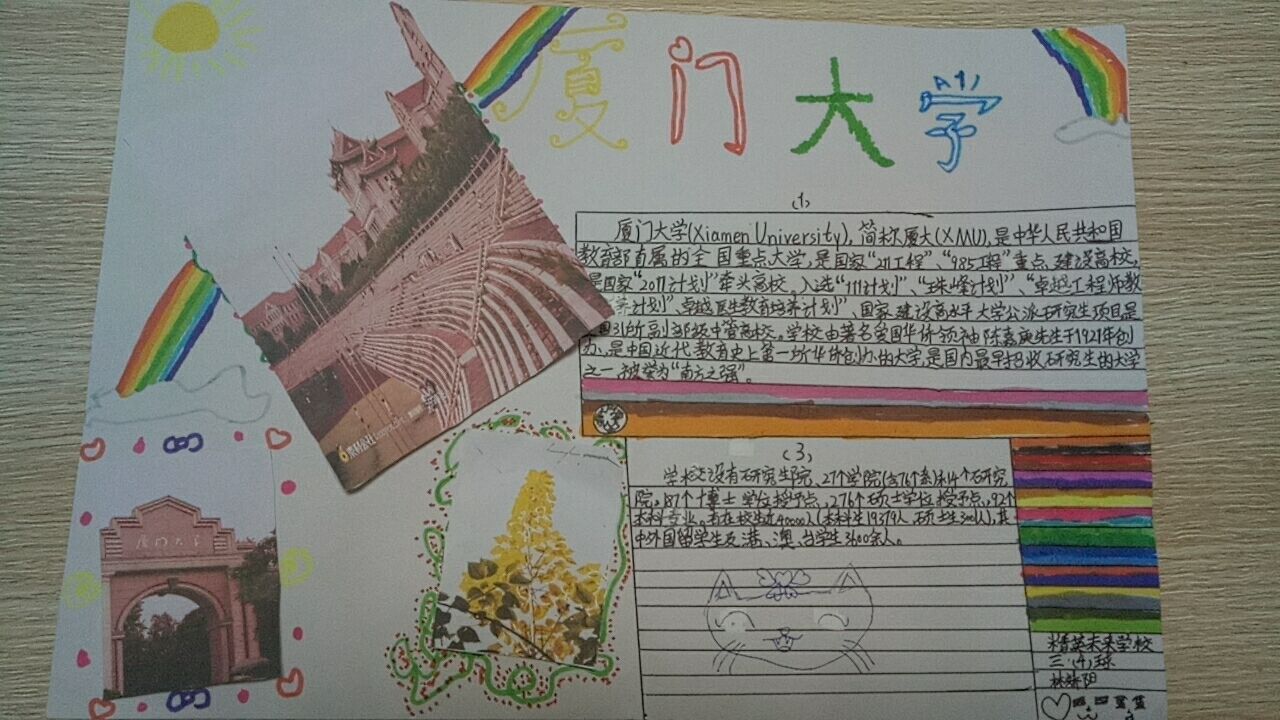 厦门大学
(1)
厦门大学(Xiamen University),简称厦大(XMU),是中华人民共和国
教育部直属的全国重点大学,是国家“211工程”、“985工程”重点建设高校,
是国家“2011计划”牵头高校。入选“111计划”、“珠峰计划”、“卓越工程师教
养计划”、卓越医生教育培养计划”、国家建设高水平大学公派研究生项目是
国31所副部级中管高校。学校由著名爱国华侨领袖陈嘉庚先生于1921年创
办、是中国近代教育史上第一所华侨创办的大学,是国内最早招收研究生的大学
之一,被誉为“南方之强”。
(3)
学校设有研究生院、27个学院(含76个系)和14个研究
院,187个博士学位授予点,276个硕士学位授予点,92个
本科专业。有在校生近40000人(本科生19379人,硕士生
中外国留学生及港、澳、台学生3600余人。
厦门大学
精英未来学校
三(4)球